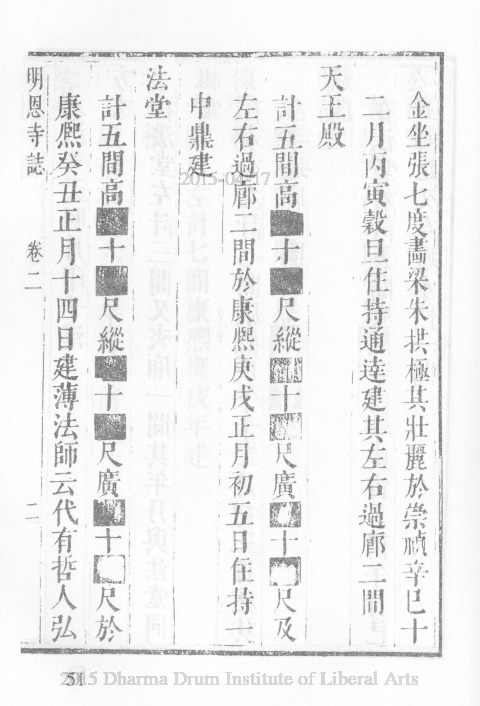 金坐張七度畵梁朱拱極其壯麗於崇禎辛巳十
二月丙寅穀旦住持通達建其左右過廊二間
天王殿
計五間高■十■尺縱■十■尺廣■十■尺及
左右過廊二間於康熈庚戌正月初五日住持
中鼎建
法堂
計五間高■十■尺縱■十■尺廣■十■尺於
康熈癸丑正月十四日建薄法師云代有哲人弘
明恩寺誌 卷二 二
51
2015 Dharma Drum Institute of Liberal Arts